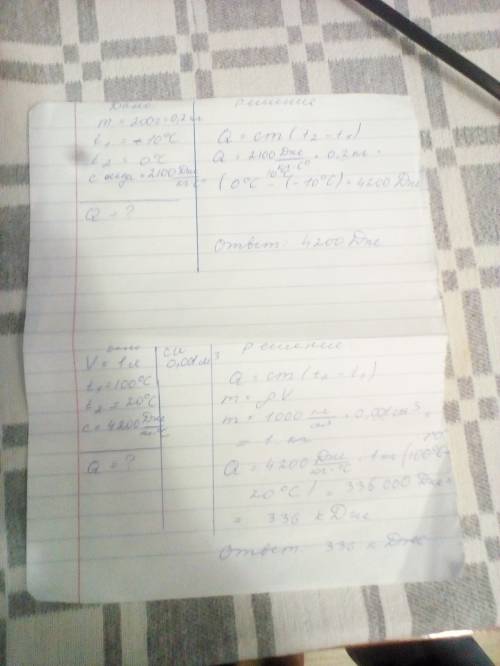 Дано
m = 200г = 0,2 кг
t₁ = -10°C
t₂ = 0°C
c льда = 2100 Дж/кг·°C
Q = ?
Решение
Q = cm (t₂ - t₁)
Q = 2100 Дж/кг·C° · 0,2 кг ·
· (0°C - (-10°C) = 4200 Дж
Ответ: 4200 Дж
Дано
V = 1 л
t₁ = 100°C
t₂ = 20°C
c = 4200 Дж/кг·°C
Q = ?
СИ
0,001 м³
Решение
Q = cm (t₂ - t₁)
m = ρV
m = 1000 кг/м³ · 0,001 м³ =
= 1 кг
Q = 4200 Дж/кг·°C · 1 кг (100°C -
20°C) = 336 000 Дж =
= 336 кДж
Ответ: 336 кДж